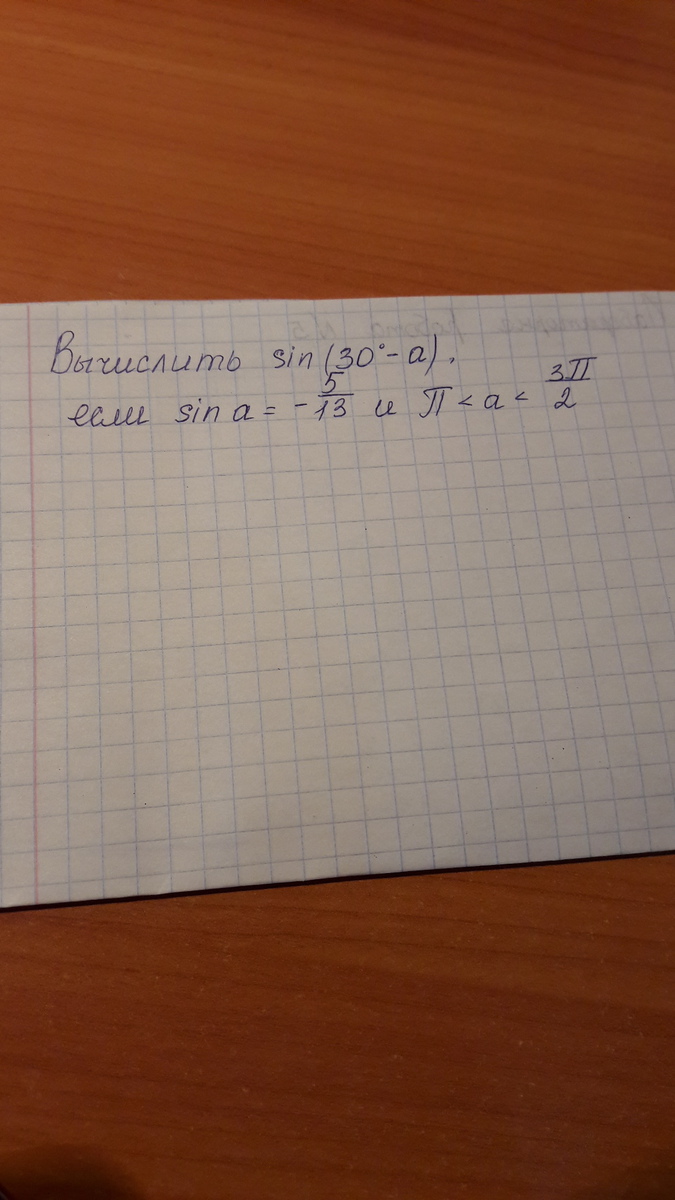 Вычислить sin(30°-a),
если sin a = -5/13 и π < a < 3π/2